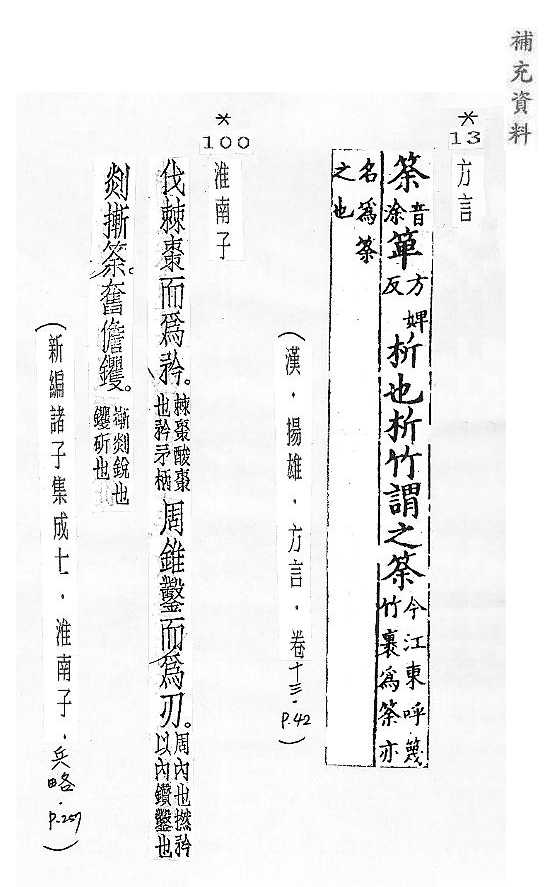 補充資料
*
13
方言
筡音涂箄方婢反析也析竹謂之筡今江東呼篾竹裏為筡亦
名為筡之也
(漢．揚雄．方言．卷十三．P.42)
*
100
淮南子
伐棘棗而為矜。棘棗酸棗也矜矛柄周錐鑿而為刃。周內也撚矜以內鑽鑿也
剡撕筡。奮儋钁。撕剡銳也钁斫也
(新編諸子集成七．淮南子．兵略．P.257)